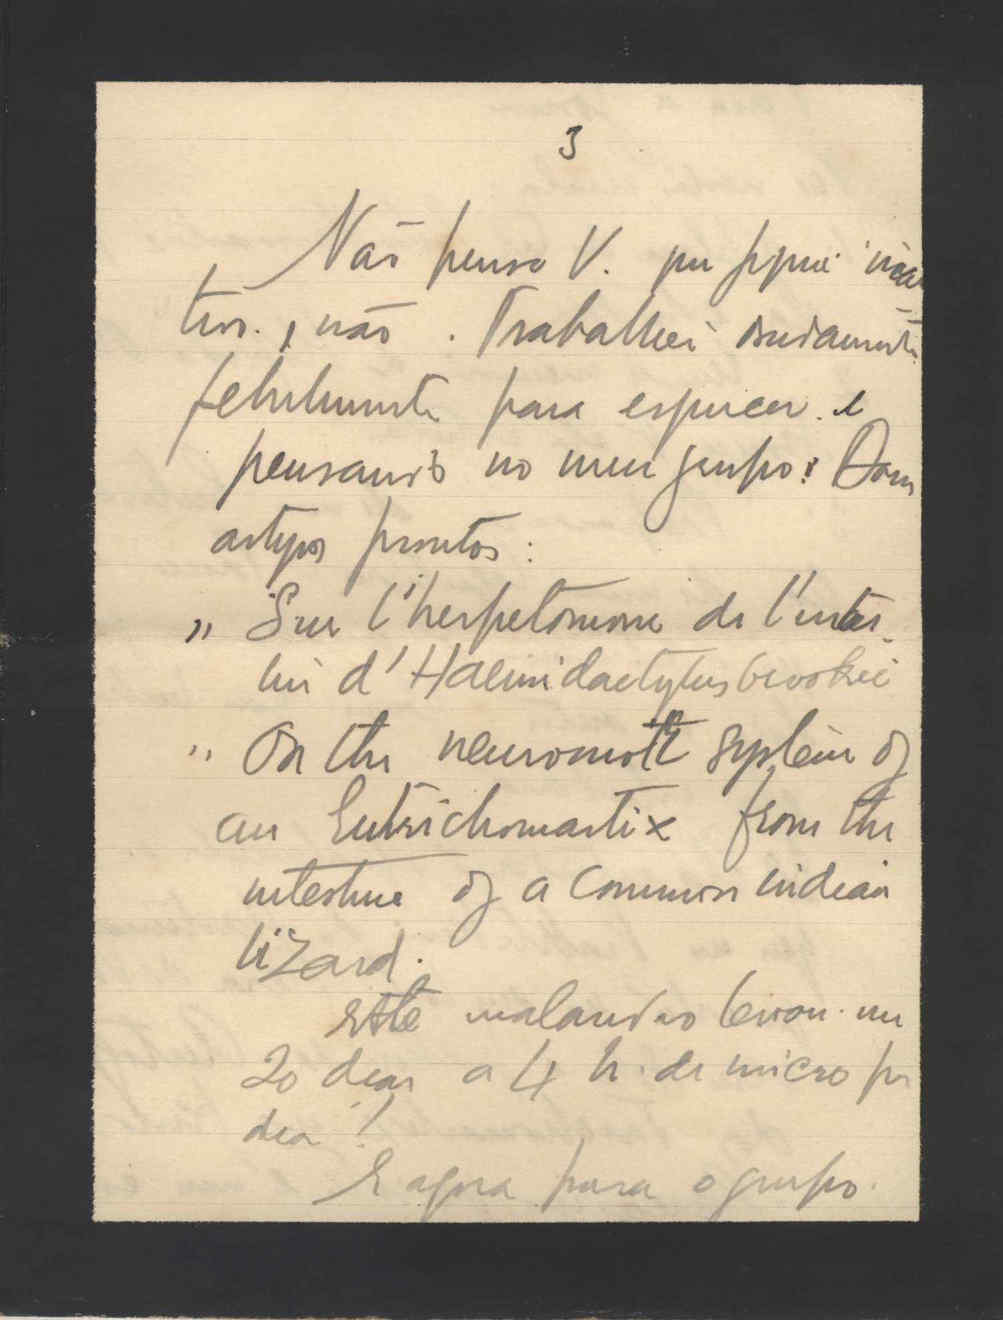 3
Não penso V. que fiquei inac
tivo, não. Trabalhei
febrilmente para esquecer e
pensando no meu grupo. Dous
artigos promptos:
" Sur l'herpetomone de l'intes
tin d'Haemidactylus brookii
" On the neuromotor system of
an Eutrichomastix from the
intestine of a common indian
lizard.
Este malandro levou-me
20 dias a 4 h. de micro por
dia!
E agora para o grupo.